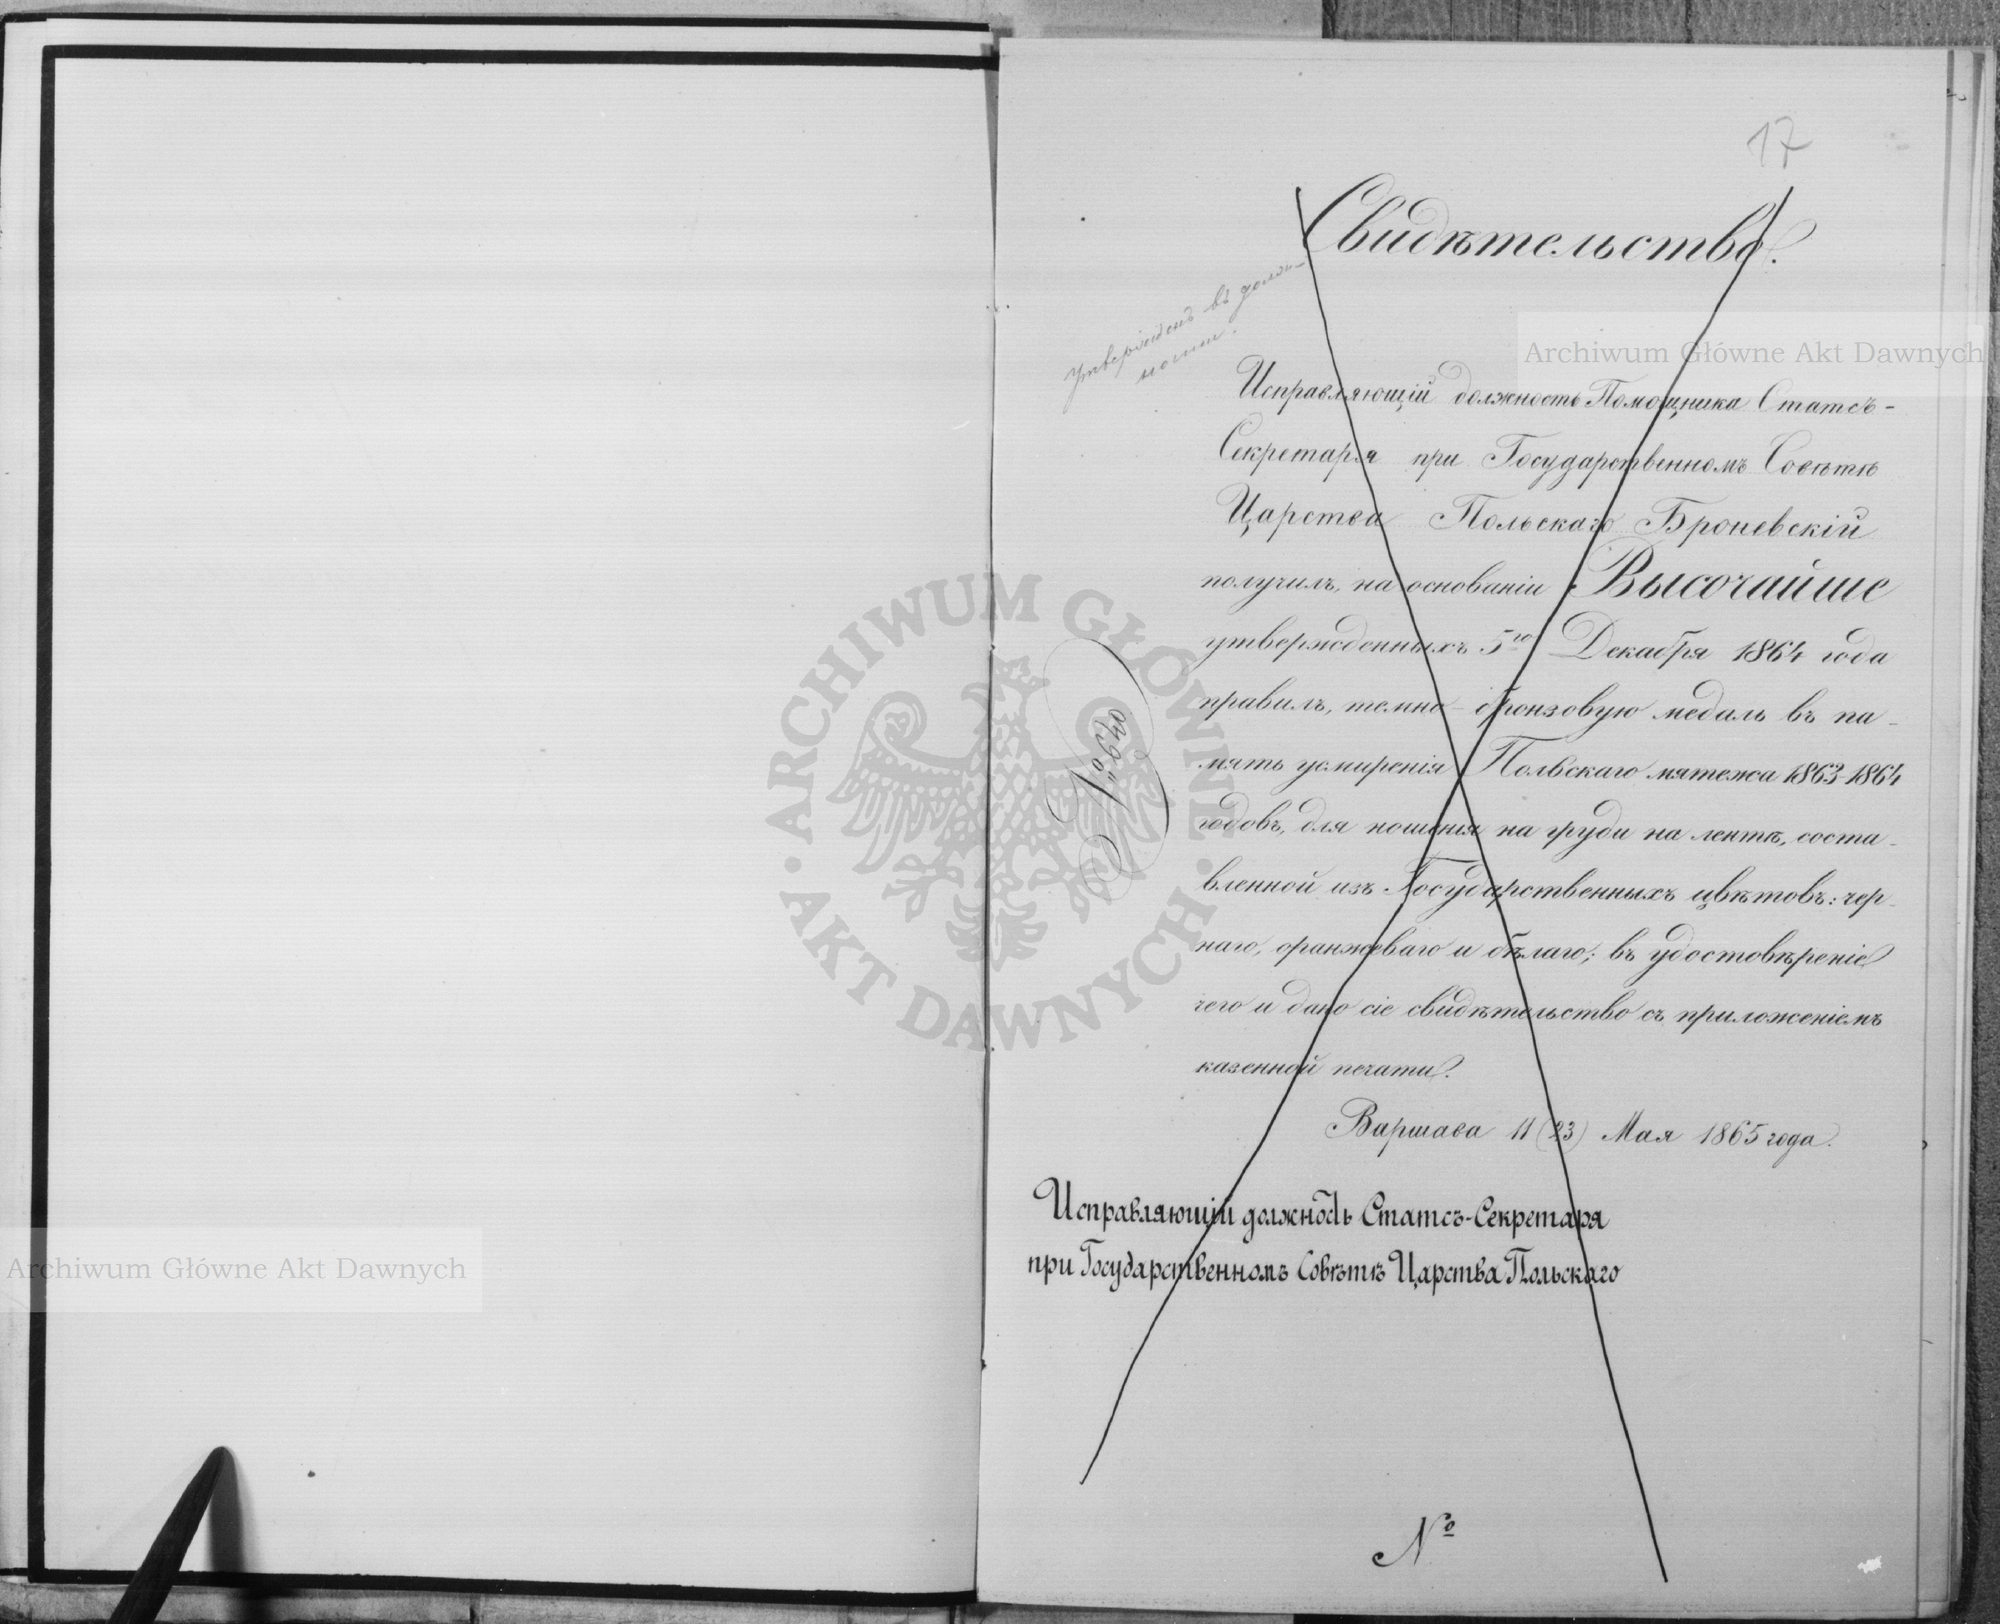 17
Свидѣтельство.
утвержденъ въ долж-
ности.
Исправляющій должность Помощника Статсъ-
Секретаря при Государственномъ Совѣтѣ
Царства Польскаго Броневскій
получилъ, на основаніи Высочайше
утвержденныхъ 5го Декабря 1864 года
правилъ, темно-бронзовую медаль въ па-
мять усмиренія Польскаго мятежа 1863-1864
годовъ, для ношенія на груди на лентѣ, соста-
вленной изъ Государственныхъ цвѣтовъ: чер-
наго, оранжеваго и бѣлаго; въ удостовѣреніе
чего и дано сіе свидѣтельство съ приложеніемъ
казенной печати.
Варшава 11 (23) Мая 1865 года.
Исправляющій должность Статсъ-Секретаря
при Государственномъ Совѣтѣ Царства Польскаго
№
Archiwum Główne Akt Dawnych
Archiwum Główne Akt Dawnych
ARCHIWUM GŁÓWNE · AKT DAWNYCH ·